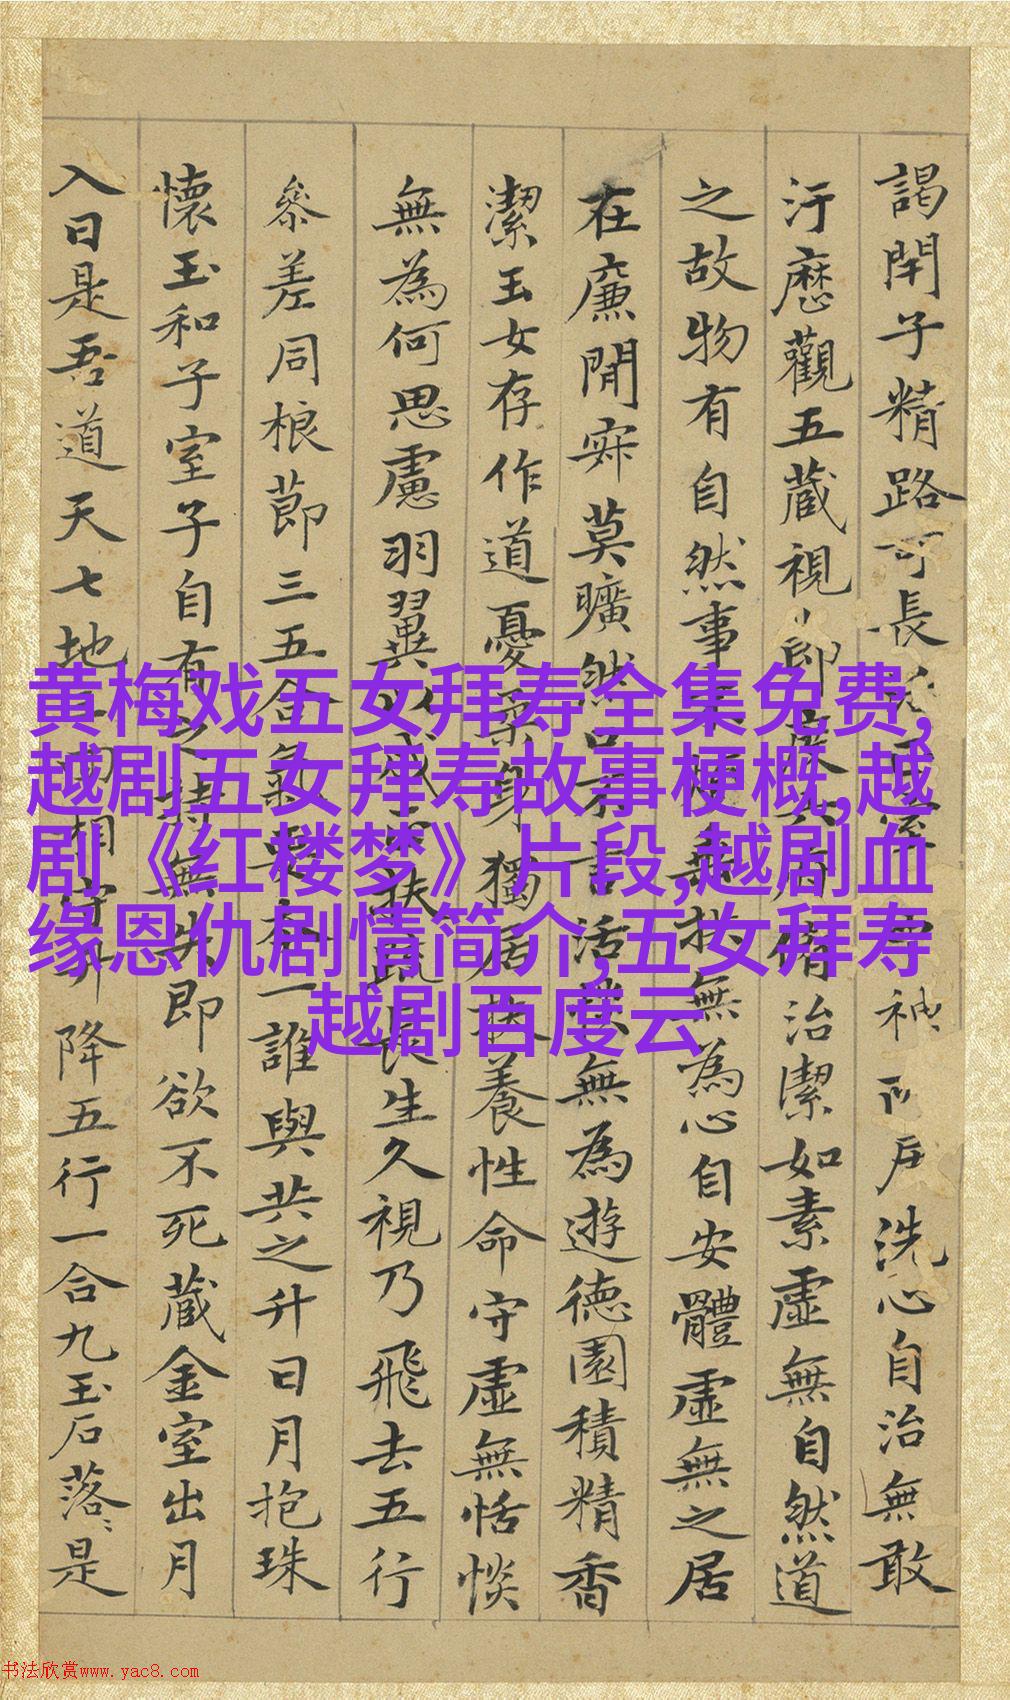 謁閇子精路可長洗心自治無敢
汙歷觀五藏視節度六府脩治潔如素虛無自然道
之故物有自然事不煩垂拱無為心自安體虛無之居
在廉閒寂莫曠然口不言活惔無為遊德園積精香
潔玉女存作道憂柔身獨居扶養性命守虛無恬惔
無為何思慮羽翼以成正扶疏長生久視乃飛去五行
參差同根節三五合氣要本一誰與共之升日月抱珠
懷玉和子室子自有之持無失即欲不死藏金室出月
入日是吾道天七地三回相守升降五行一合九玉石落〻是
黄梅戏五女拜寿全集免费,
越剧五女拜寿故事梗概,越
剧《红楼梦》片段,越剧血
缘恩仇剧情简介,五女拜寿
越剧百度云
书法欣赏www.yac8.com